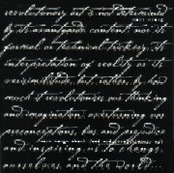 revolutionary art is not determined
by its avantgarde content nor its
formal or technical trickery, its
interpretation of reality or its
verisimilitude, but, rather, by how
much it revolutionizes our thinking
and imagination; overturning our
preconceptions, bias and prejudice
and inspiring us to change
ourselves and the world